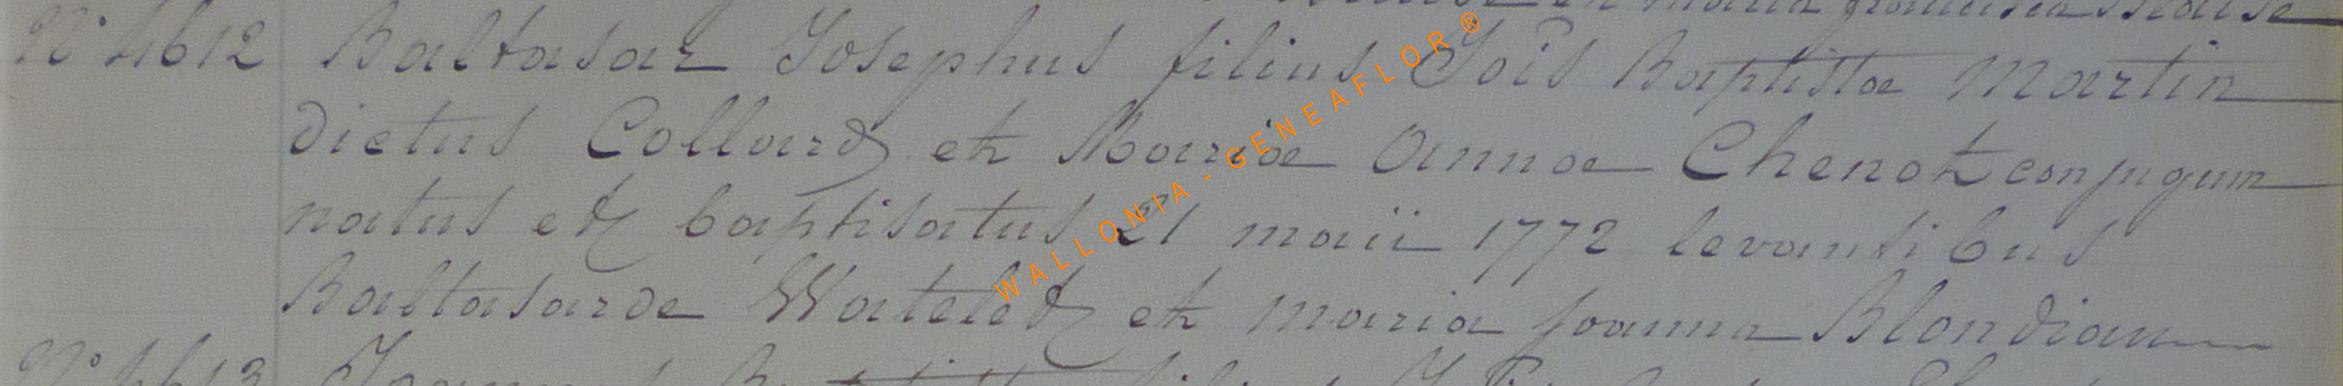 N° 4612 Baltasar Josephus filius Jois Baptistæ Martin
dictus Collard et Mariæ Annæ Chenot conjugum
natus et baptisatus 21 maii 1772 levantibus
Baltasarde Watelet et maria joanna Blondiau
N° 4613
WALLONIA - GENEAFLOR®